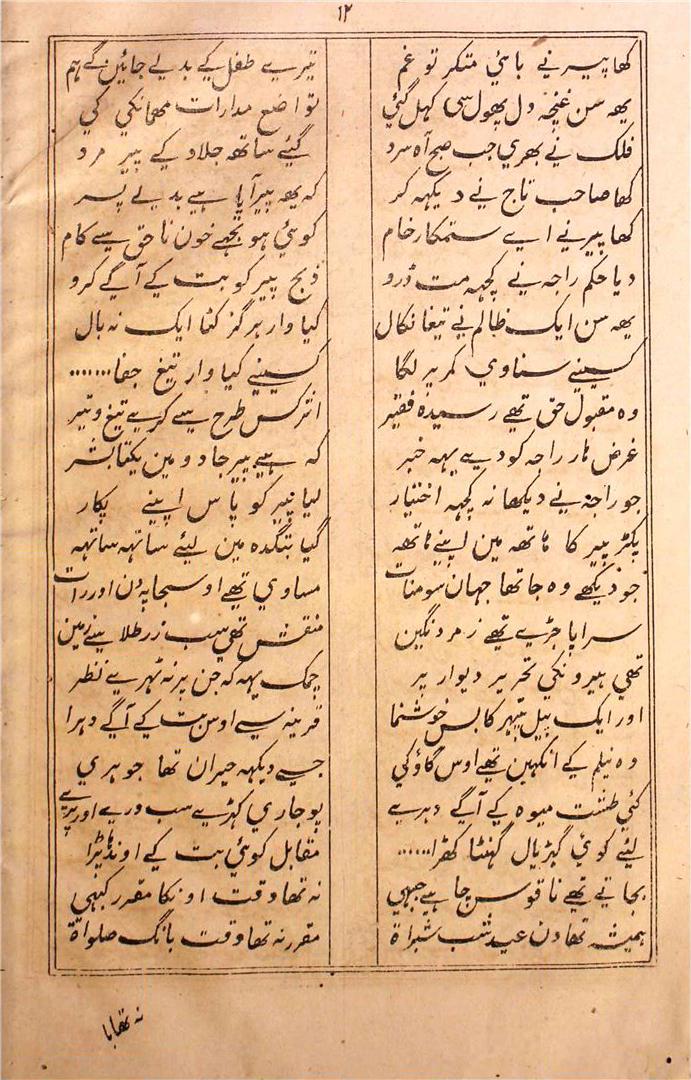 ۱۲
کہا پیر نے بائی متکر تو غم
تیرے طفل کے بدلے جائیں گے ہم
یھہ سن غنچہ دل پھول سی کہل گئی
تواضع مدارات مھمانکی کی
فلک نے بھری جب صبح آہ سرد
گئے ساتھہ جلاد کے پیر مرد
کھا صاحب تاج نے دیکھہ کر
کہ یھہ پیر آیا ہے بدلے پسر
کھا پیر نے اے ستمکار خام
کوئی ہو تجھے خون ناحق سے کام
دیا حکم راجہ نے کچہہ مت ڈرو
ذبح پیر کو بت کے آگے کرو
یھہ سن ایک ظالم نے تیغا نکال
کیا وار ہرگز کٹا ایک نہ بال
کسینے سناوی کمر پر لگا
کسینے کیا وار تیغ جفا.......
وہ مقبول حق تھے رسیدہ فقیر
اثر کس طرح سے کرے تیغ و تیر
غرض ہار راجہ کو دی یہہ خبر
کہ ہے پیر جادو مین یکتا بشر
جو راجہ نے دیکھا نہ کچہہ اختیار
لیا پیر کو پاس اپنے پکار
پکڑ پیر کا ہاتھہ مین اپنے ہاتھہ
گیا بتکدہ مین لیئے ساتہہ ساتہہ
جو دیکھے وہ جا تھا جہان سومنات
مساوی تھے اوسجا پہ دن اور رات
سراپا جڑے تھے زمرد نگین
منقش تھی سب زر طلا سے زمین
تھی ہیرونکی تحریر دیوار پر
چمک یہہ کہ جن پر نہ ٹہرے نظر
اور ایک بیل پتہر کا بس خوشنما
قرینہ سے اوس بت کے آگے دہرا
وہ نیلم کے انکہین تھے اوس گاؤ کی
جسے دیکہہ حیران تھا جوہری
کئی طشت میوہ کے آگے دہرے
پوجاری کھڑے سب ورے اور پرے
لیئے کوئی گہڑیال گہنٹا کھڑا......
مقابل کوئی بت کے اوندھا پڑا
بجاتے تھے ناقوس چاہے جبہی
نہ تھا وقت اونکا مقرر کبہی
ہمیشہ تھا دن عید شب شبراة
مقرر نہ تھا وقت بانگ صلواة
نہ تھا با